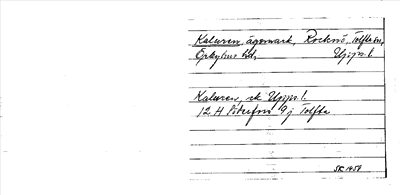 Kaluren, ägomark, Rocknö, Tolfta sn,
Örbyhus hd, Upps. l.
Kaluren, ek Upps. l.
12 H Söderfors 9 j Tolfta